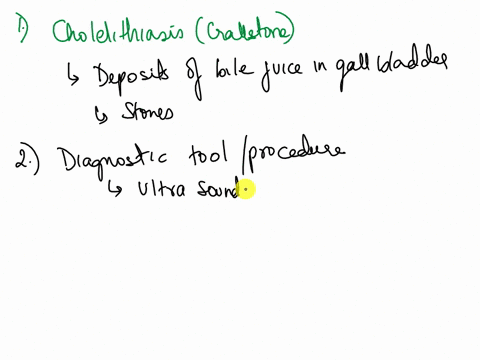 1) Cholelithiasis (Gallstone)
↳ Deposits of bile juice in gall bladder
↳ Stones
2.) Diagnostic tool /procedure
↳ Ultra sound.